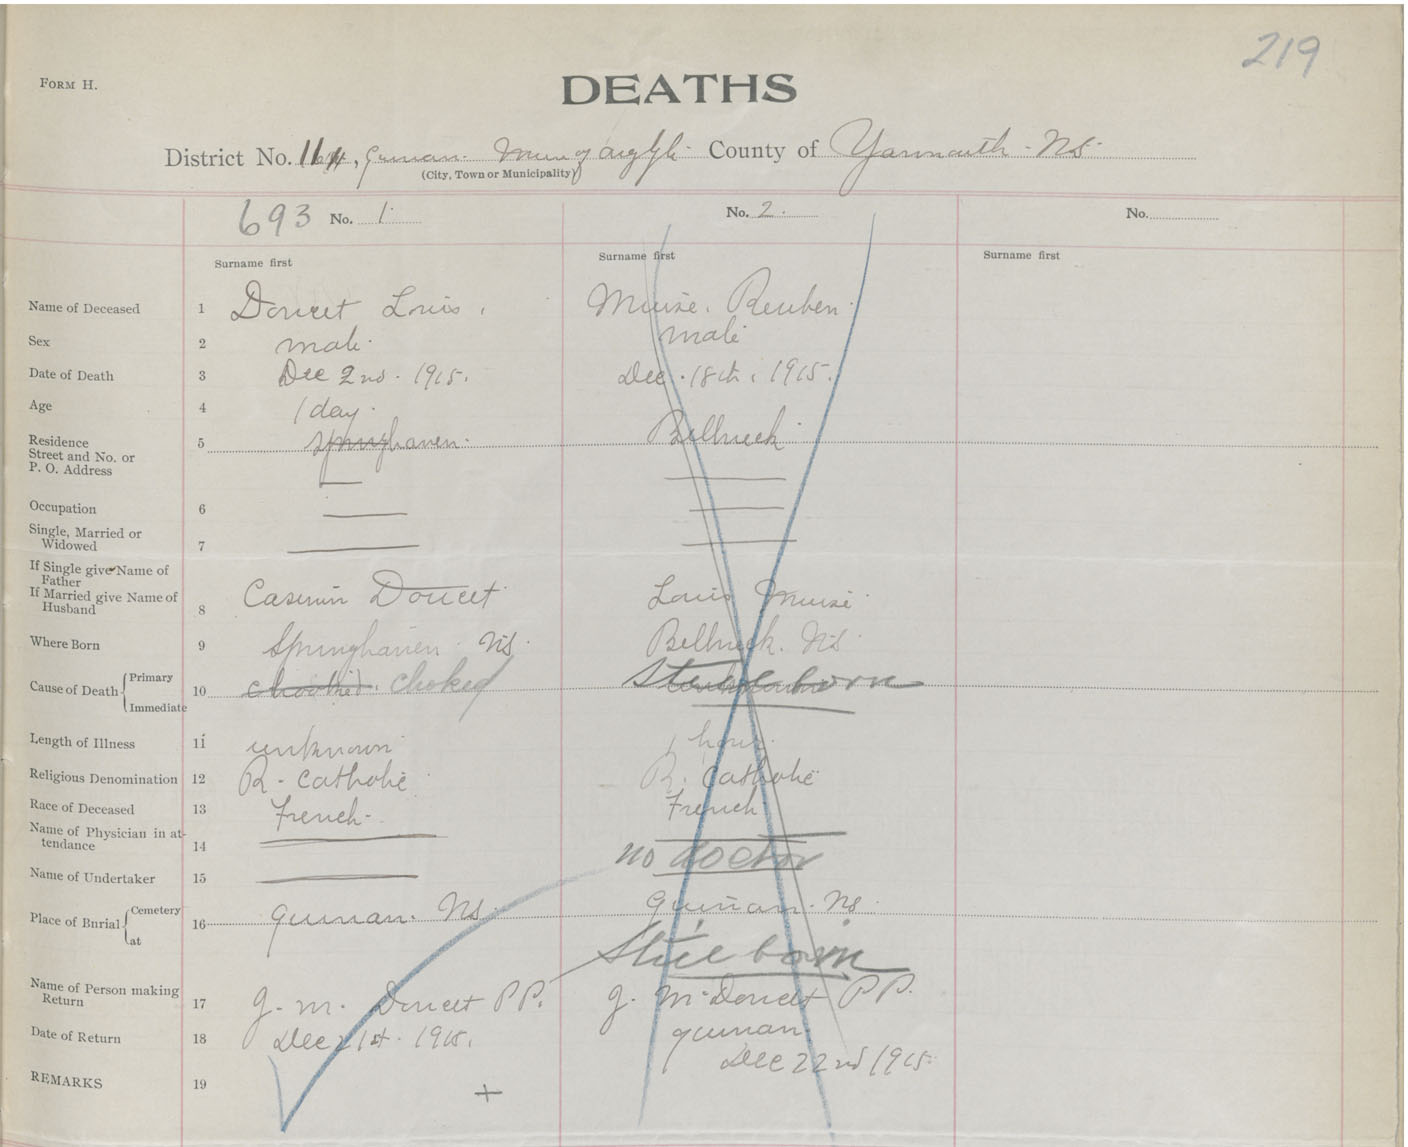 219
FORM H.
DEATHS
District No. 114, Quinan. Mun of Argyle County of Yarmouth - NS.
(City, Town or Municipality)
693 No. 1. No. 2. No.
Surname first Surname first Surname first
Name of Deceased 1 Doucet Louis. Muise. Reuben.
Sex 2 male. male
Date of Death 3 Dec 2nd. 1915. Dec. 18th. 1915.
Age 4 1 day.
Residence 5 Springhaven. Bellneck
Street and No. or
P. O. Address
Occupation 6
Single, Married or
Widowed 7
If Single give Name of
Father
If Married give Name of
Husband 8 Casimir Doucet Louis Muise
Where Born 9 Springhaven NS. Bellneck. NS
Cause of Death { Primary
10 chooked. choked Still born
Immediate
Length of Illness 11 unknown 1 hour.
Religious Denomination 12 R - Catholic R. Catholic
Race of Deceased 13 French- French
Name of Physician in at-
tendance 14 no doctor
Name of Undertaker 15
Place of Burial { Cemetery
16 Quinan. NS. Quinan. NS
at Still born
Name of Person making
Return 17 J. M. Doucet P.P. J. M. Doucet P.P.
Quinan.
Date of Return 18 Dec 21st. 1915. Dec 22nd 1915
REMARKS 19